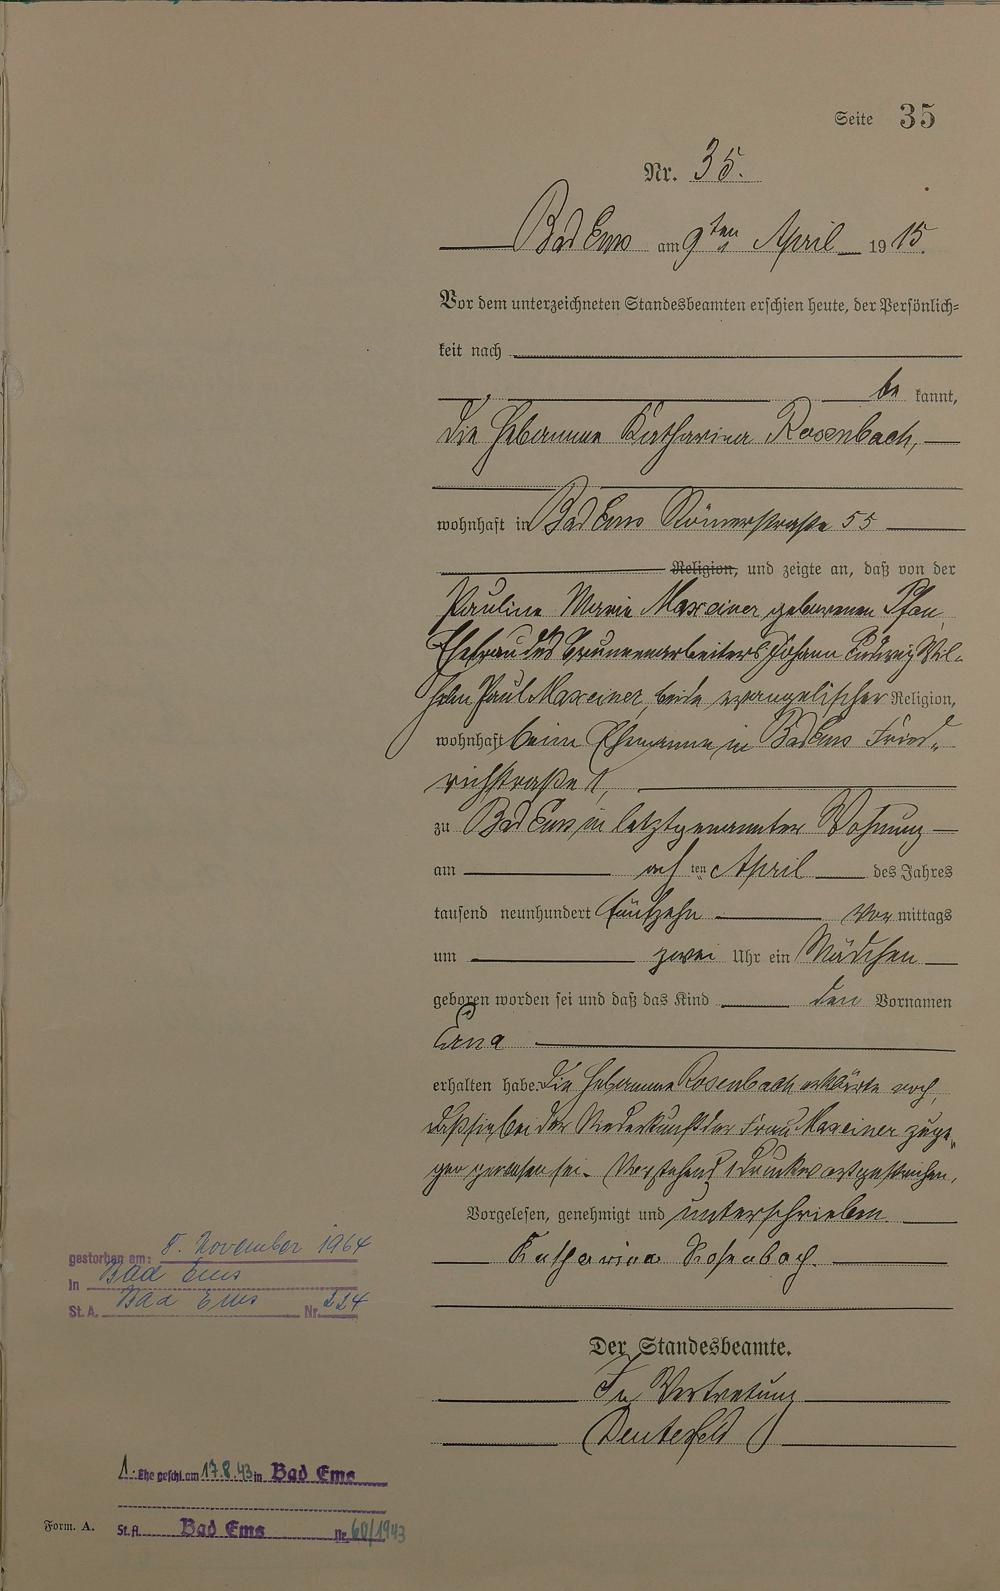 Seite 35
Nr. 35.
Bad Ems am 9ten April 1915.
Vor dem unterzeichneten Standesbeamten erschien heute, der Persönlich=
keit nach
be kannt,
die Hebamme Katharina Rosenbach,
wohnhaft in Bad Ems Römerstraße 55
Religion, und zeigte an, daß von der
Pauline Marie Maxeiner geborenen Pfau,
Ehefrau des Brunnenarbeiters Johann Ludwig Wil=
helm Paul Maxeiner, beide evangelischer Religion,
wohnhaft beim Ehemanne in Bad Ems Fried=
richstraße 1,
zu Bad Ems in letztgenannter Wohnung
am achten April des Jahres
tausend neunhundert fünfzehn Vormittags
um zwei Uhr ein Mädchen
geboren worden sei und daß das Kind den Vornamen
Erna
erhalten habe. Die Hebamme Rosenbach erklärte noch,
daß sie bei der Niederkunft der Frau Maxeiner zuge=
gen gewesen sei. Vorstehend 1 Druckwort gestrichen.
Vorgelesen, genehmigt und unterschrieben
Katharina Rosenbach.
Der Standesbeamte.
In Vertretung
gestorben am: 8. November 1964
in Bad Ems
St. A. Bad Ems Nr. 224
1. Ehe geschl. am 17.8.43 in Bad Ems
St. A. Bad Ems Nr. 60/1943
Form. A.